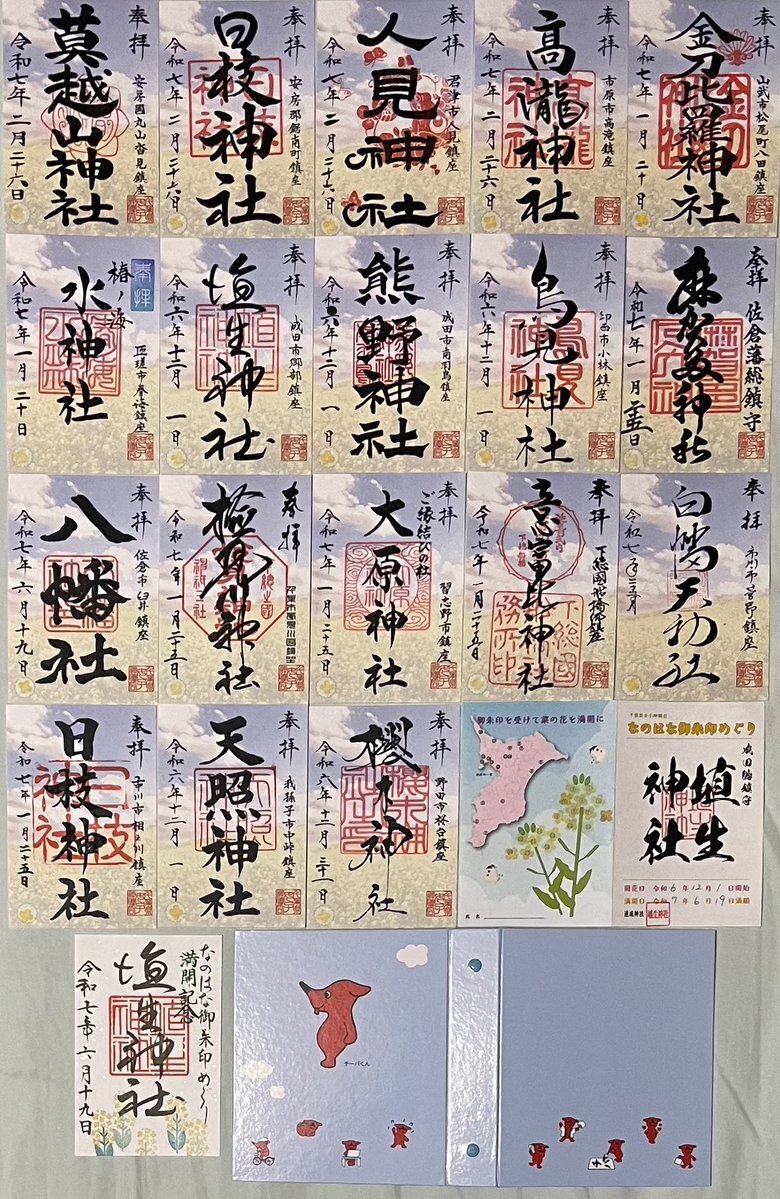 奉拝
安房國丸山沓見鎮座
莫越山神社
令和七年二月二十六日
奉拝
安房郡鋸南町鎮座
日枝神社
令和七年二月二十六日
奉拝
君津市人見鎮座
人見神社
令和七年二月二十六日
奉拝
市原市高滝鎮座
高瀧神社
令和七年二月二十六日
奉拝
山武市松尾町八田鎮座
金刀比羅神社
令和七年一月二十日
奉拝
匝瑳市春海鎮座
椿ノ海
水神社
令和七年一月二十日
奉拝
成田市郷部鎮座
埴生神社
令和六年十二月一日
奉拝
成田市南羽鳥鎮座
熊野神社
令和六年十二月一日
奉拝
印西市小林鎮座
鳥見神社
令和六年十二月一日
奉拝 佐倉藩総鎮守
麻賀多神社
令和七年一月二十五日
奉拝
佐倉市臼井鎮座
八幡社
令和七年六月十九日
奉拝
検見川神社
令和七年一月二十五日
奉拝
習志野市鎮座
ご縁結びの松
大原神社
令和七年一月二十五日
奉拝
下総國船橋鎮座
意富比神社
下総國
務所印
令和七年一月二十五日
奉拝
市川市菅野鎮座
白幡天神社
奉拝
市川市相之川鎮座
日枝神社
令和七年一月二十五日
奉拝
我孫子市中峠鎮座
天照神社
令和六年十二月一日
奉拝
野田市桜台鎮座
櫻木神社
令和六年十二月三十一日
御朱印を受けて菜の花を満開に
氏名
なのはな御朱印めぐり
成田総鎮守
埴生
神社
開花日 令和6年12月1日開始
満開日 令和7年6月19日満願
達成神社 埴生神社
なのはな御朱印めぐり
満開記念
埴生神社
令和七年六月十九日
チーバくん